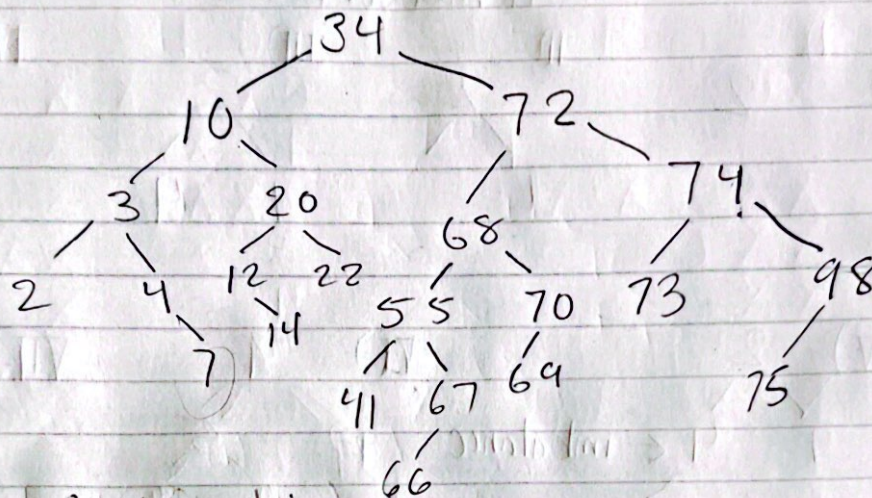 34
10 72
3 20 68 74
2 4 12 22 55 70 73 98
7 14 41 67 69 75
66